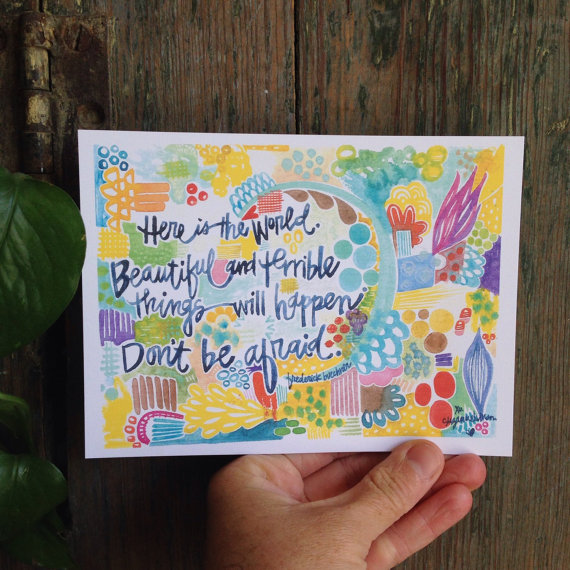 Here is the World.
Beautiful and terrible
things will happen.
Don't be afraid.
frederick buechner